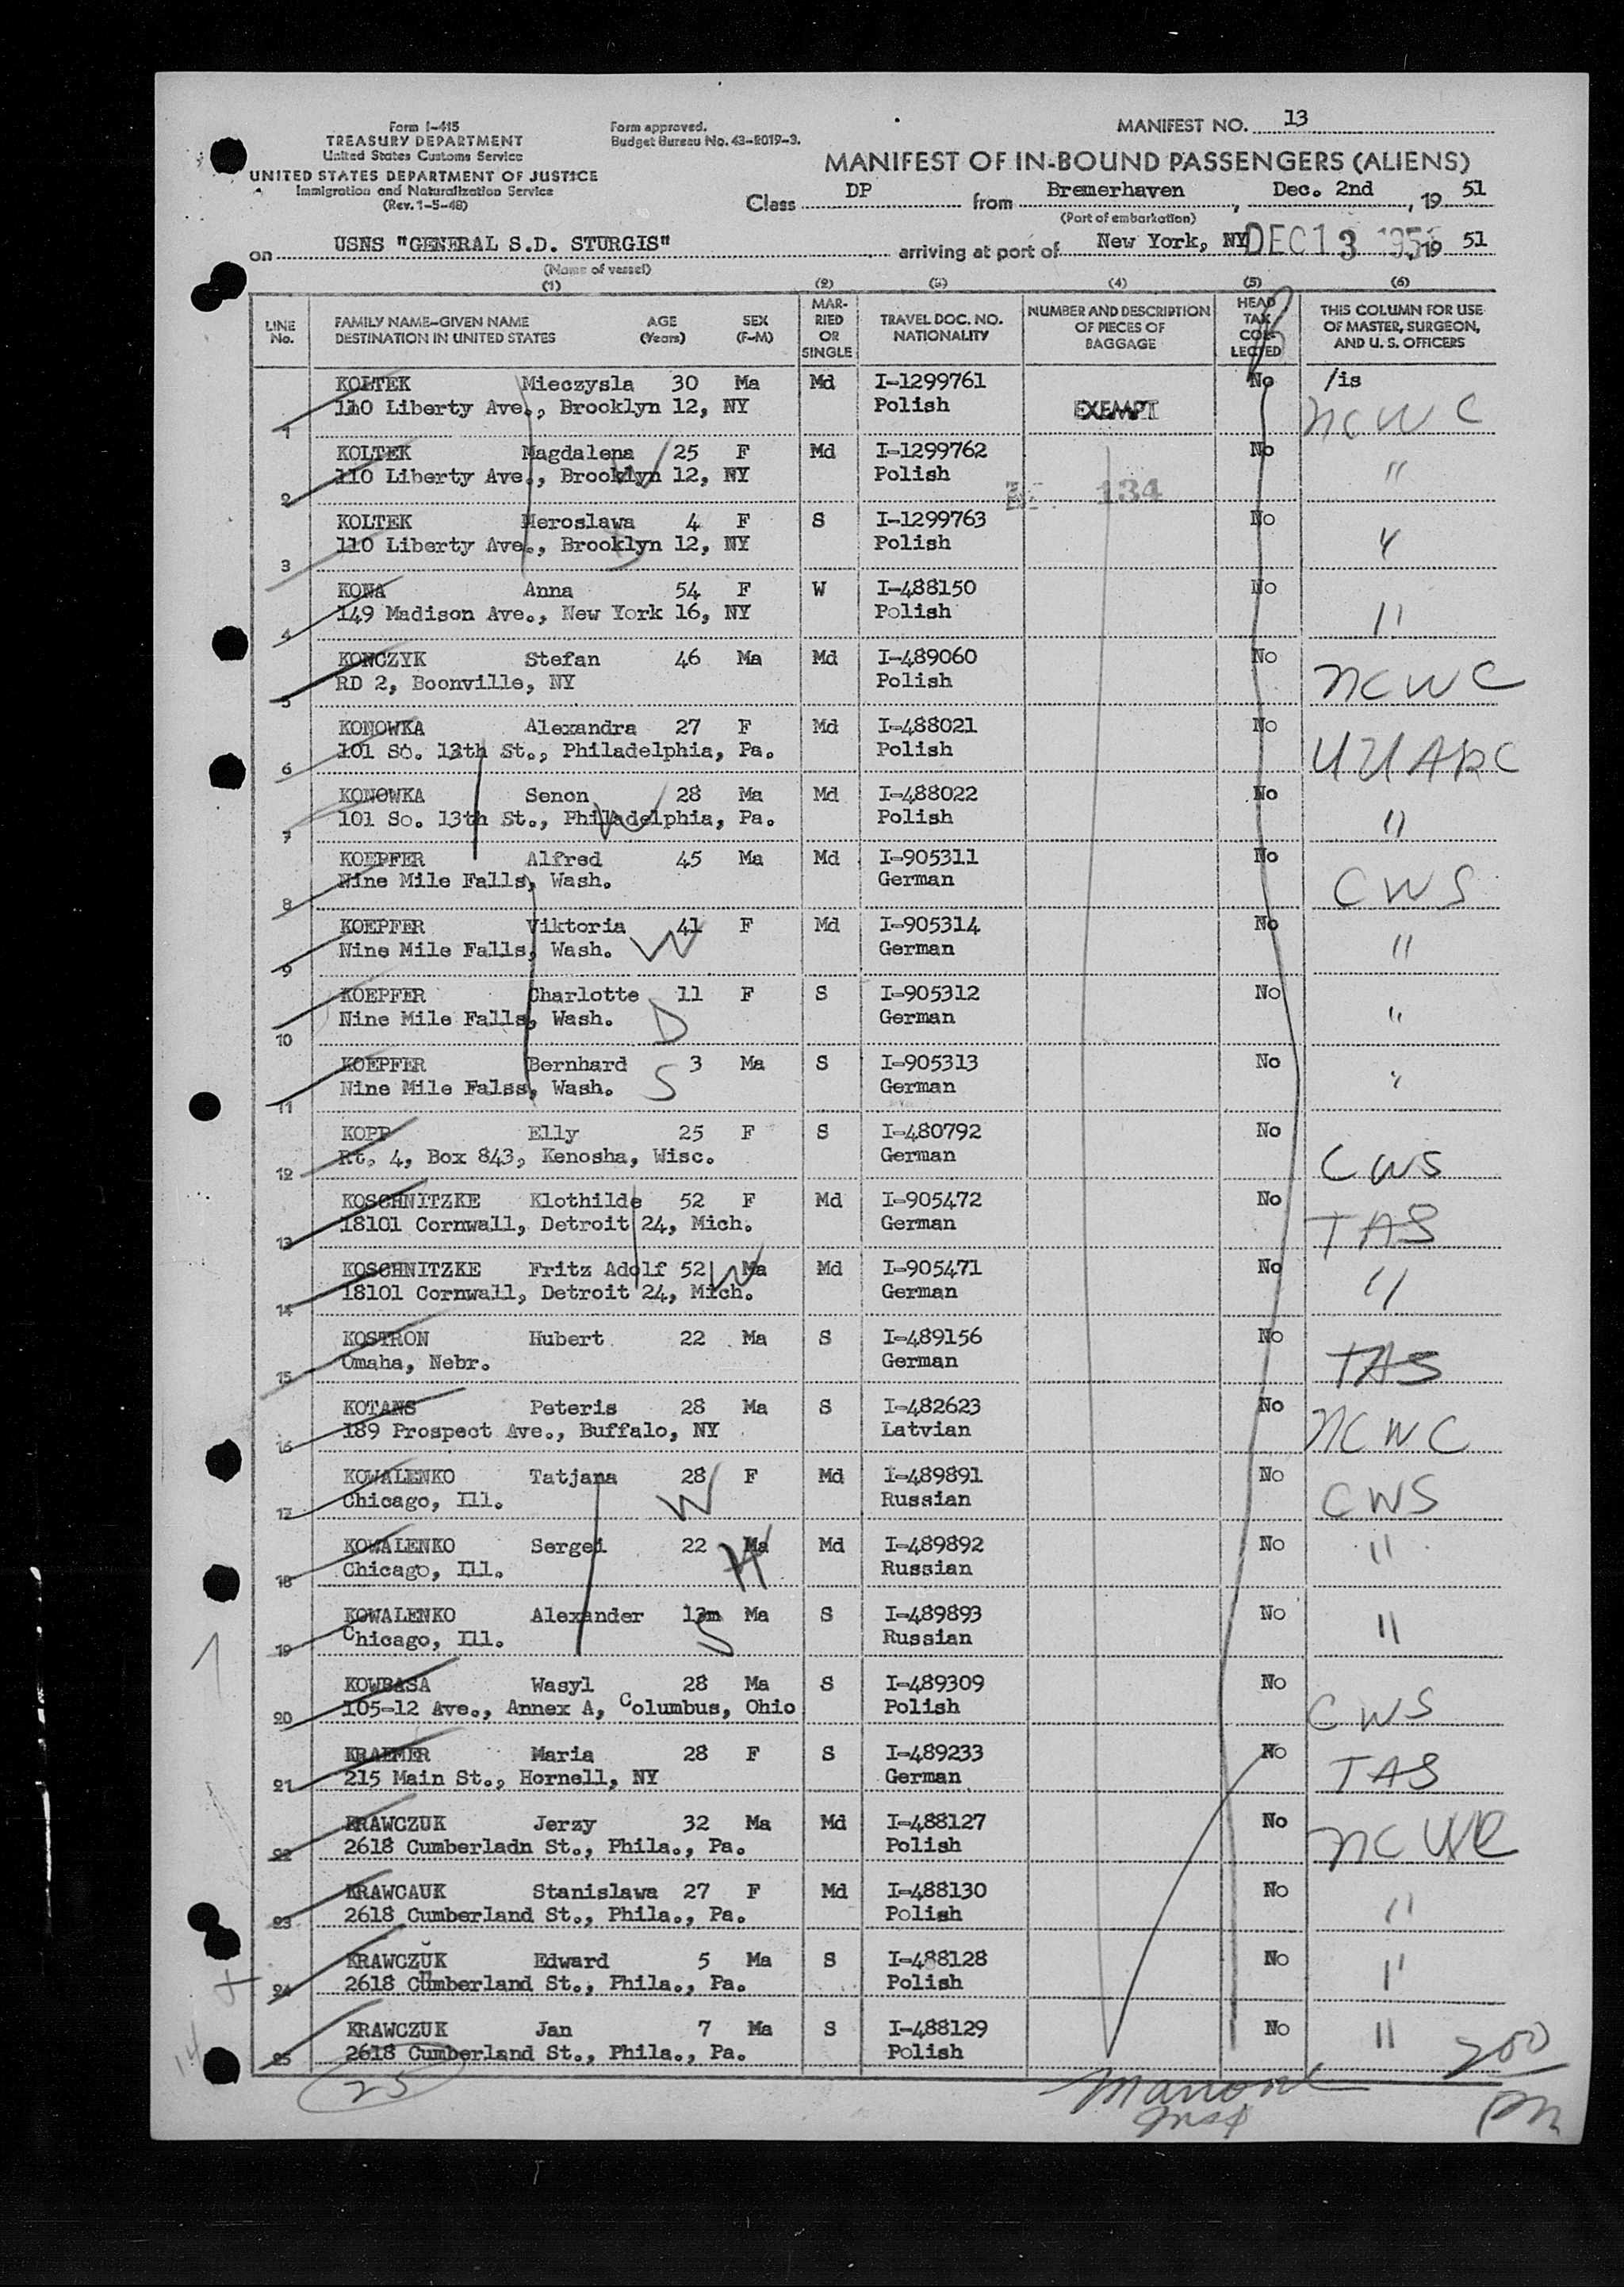 Form I-415
TREASURY DEPARTMENT
United States Customs Service
UNITED STATES DEPARTMENT OF JUSTICE
Immigration and Naturalization Service
(Rev. 1-5-48)
Form approved.
Budget Bureau No. 43-R019-3.
MANIFEST NO. 13
MANIFEST OF IN-BOUND PASSENGERS (ALIENS)
Class DP from Bremerhaven, Dec. 2nd, 19 51
(Port of embarkation)
on USNS "GENERAL S.D. STURGIS" arriving at port of New York, NY DEC 13 19 51
(Name of vessel)
(1) (2) (3) (4) (5) (6)
LINE No. FAMILY NAME-GIVEN NAME DESTINATION IN UNITED STATES AGE (Years) SEX (F-M) MARRIED OR SINGLE TRAVEL DOC. NO. NATIONALITY NUMBER AND DESCRIPTION OF PIECES OF BAGGAGE HEAD TAX COLLECTED THIS COLUMN FOR USE OF MASTER, SURGEON, AND U. S. OFFICERS
KOLTEK Mieczysla 30 Ma Md I-1299761 No /is
1 110 Liberty Ave., Brooklyn 12, NY Polish EXEMPT NCWC
KOLTEK Magdalena 25 F Md I-1299762 No
2 110 Liberty Ave., Brooklyn 12, NY W Polish 134 "
KOLTEK Meroslawa 4 F S I-1299763 No
3 110 Liberty Ave., Brooklyn 12, NY D Polish "
KONA Anna 54 F W I-488150 No
4 149 Madison Ave., New York 16, NY Polish "
KONCZYK Stefan 46 Ma Md I-489060 No
5 RD 2, Boonville, NY Polish NCWC
KONOWKA Alexandra 27 F Md I-488021 No
6 101 So. 13th St., Philadelphia, Pa. Polish UUARC
KONOWKA Senon 28 Ma Md I-488022 No
7 101 So. 13th St., Philadelphia, Pa. W Polish "
KOEPFER Alfred 45 Ma Md I-905311 No
8 Nine Mile Falls, Wash. German CWS
KOEPFER Viktoria 41 F Md I-905314 No
9 Nine Mile Falls, Wash. W German "
KOEPFER Charlotte 11 F S I-905312 No
10 Nine Mile Falls, Wash. D German "
KOEPFER Bernhard 3 Ma S I-905313 No
11 Nine Mile Falss, Wash. S German "
KOPP Elly 25 F S I-480792 No
12 Rt. 4, Box 843, Kenosha, Wisc. German CWS
KOSCHNITZKE Klothilde 52 F Md I-905472 No
13 18101 Cornwall, Detroit 24, Mich. German TAS
KOSCHNITZKE Fritz Adolf 52 W Ma Md I-905471 No
14 18101 Cornwall, Detroit 24, Mich. German "
KOSTRON Hubert 22 Ma S I-489156 No
15 Omaha, Nebr. German TAS
KOTANS Peteris 28 Ma S I-482623 No
16 189 Prospect Ave., Buffalo, NY Latvian NCWC
KOWALENKO Tatjana 28 F Md I-489891 No
17 Chicago, Ill. W Russian CWS
KOWALENKO Sergei 22 Ma Md I-489892 No
18 Chicago, Ill. H Russian "
KOWALENKO Alexander 13m Ma S I-489893 No
19 Chicago, Ill. S Russian "
KOWBASA Wasyl 28 Ma S I-489309 No
20 105-12 Ave., Annex A, Columbus, Ohio Polish CWS
KRAEMER Maria 28 F S I-489233 No
21 215 Main St., Hornell, NY German TAS
KRAWCZUK Jerzy 32 Ma Md I-488127 No
22 2618 Cumberladn St., Phila., Pa. Polish NCWC
KRAWCAUK Stanislawa 27 F Md I-488130 No
23 2618 Cumberland St., Phila., Pa. Polish "
KRAWCZUK Edward 5 Ma S I-488128 No
24 2618 Cumberland St., Phila., Pa. Polish "
KRAWCZUK Jan 7 Ma S I-488129 No
25 2618 Cumberland St., Phila., Pa. Polish "
25 200
Insp PM